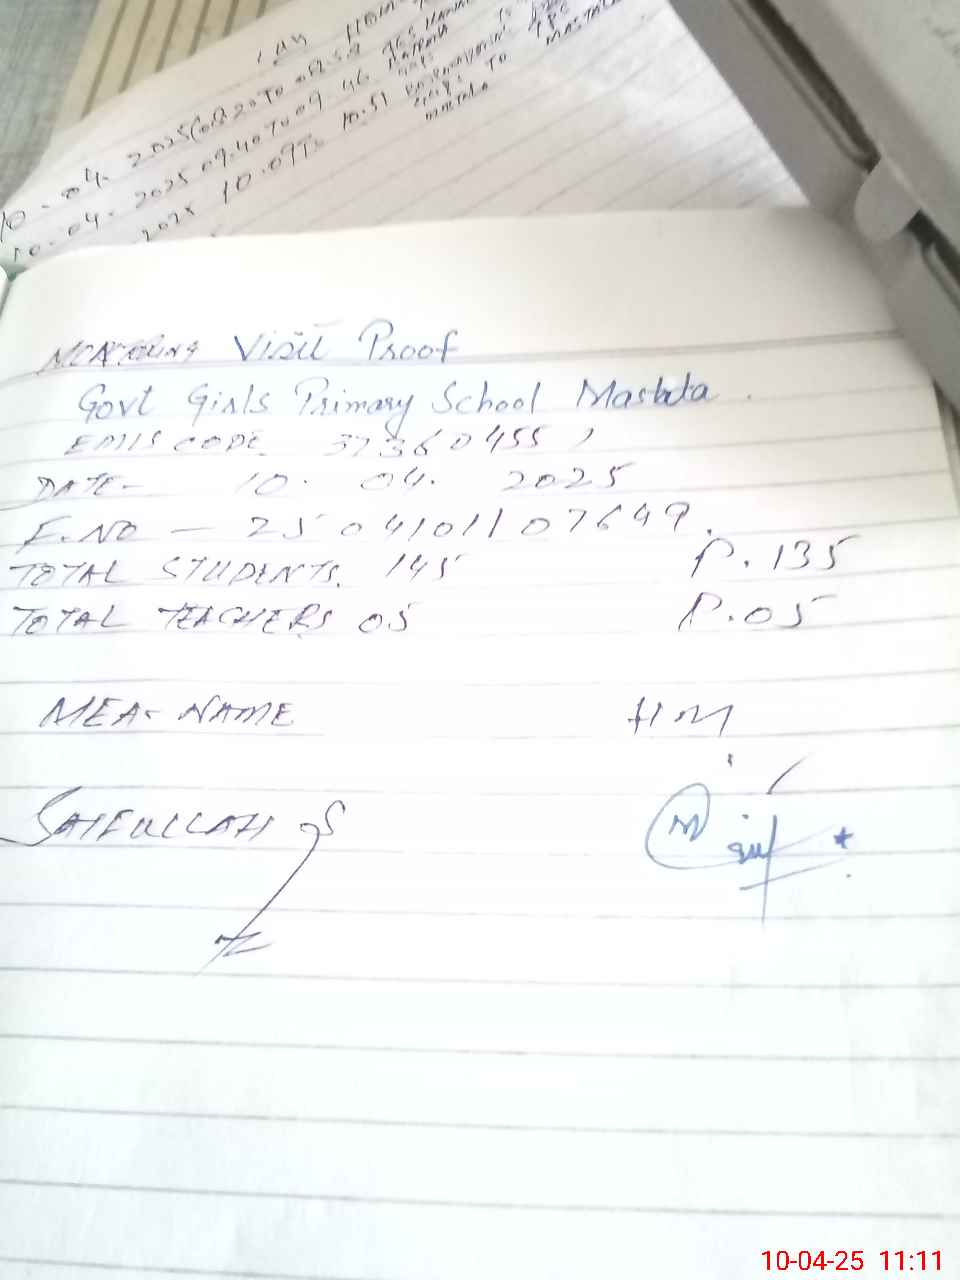 10-04-2025 08.20 TO 08.52 GES
10-04-2025 09.40 TO 09.46
2025 10.09 TO 10.51
TO
MASTALA
MONITORING Visit Proof
Govt Girls Primary School Mastala.
EMIS CODE. 37360455
DATE- 10. 04. 2025
F.NO - 2504101107649.
TOTAL STUDENTS. 145 P.135
TOTAL TEACHERS 05 P.05
MEA- NAME HM
SAIFULLAH
10-04-25 11:11